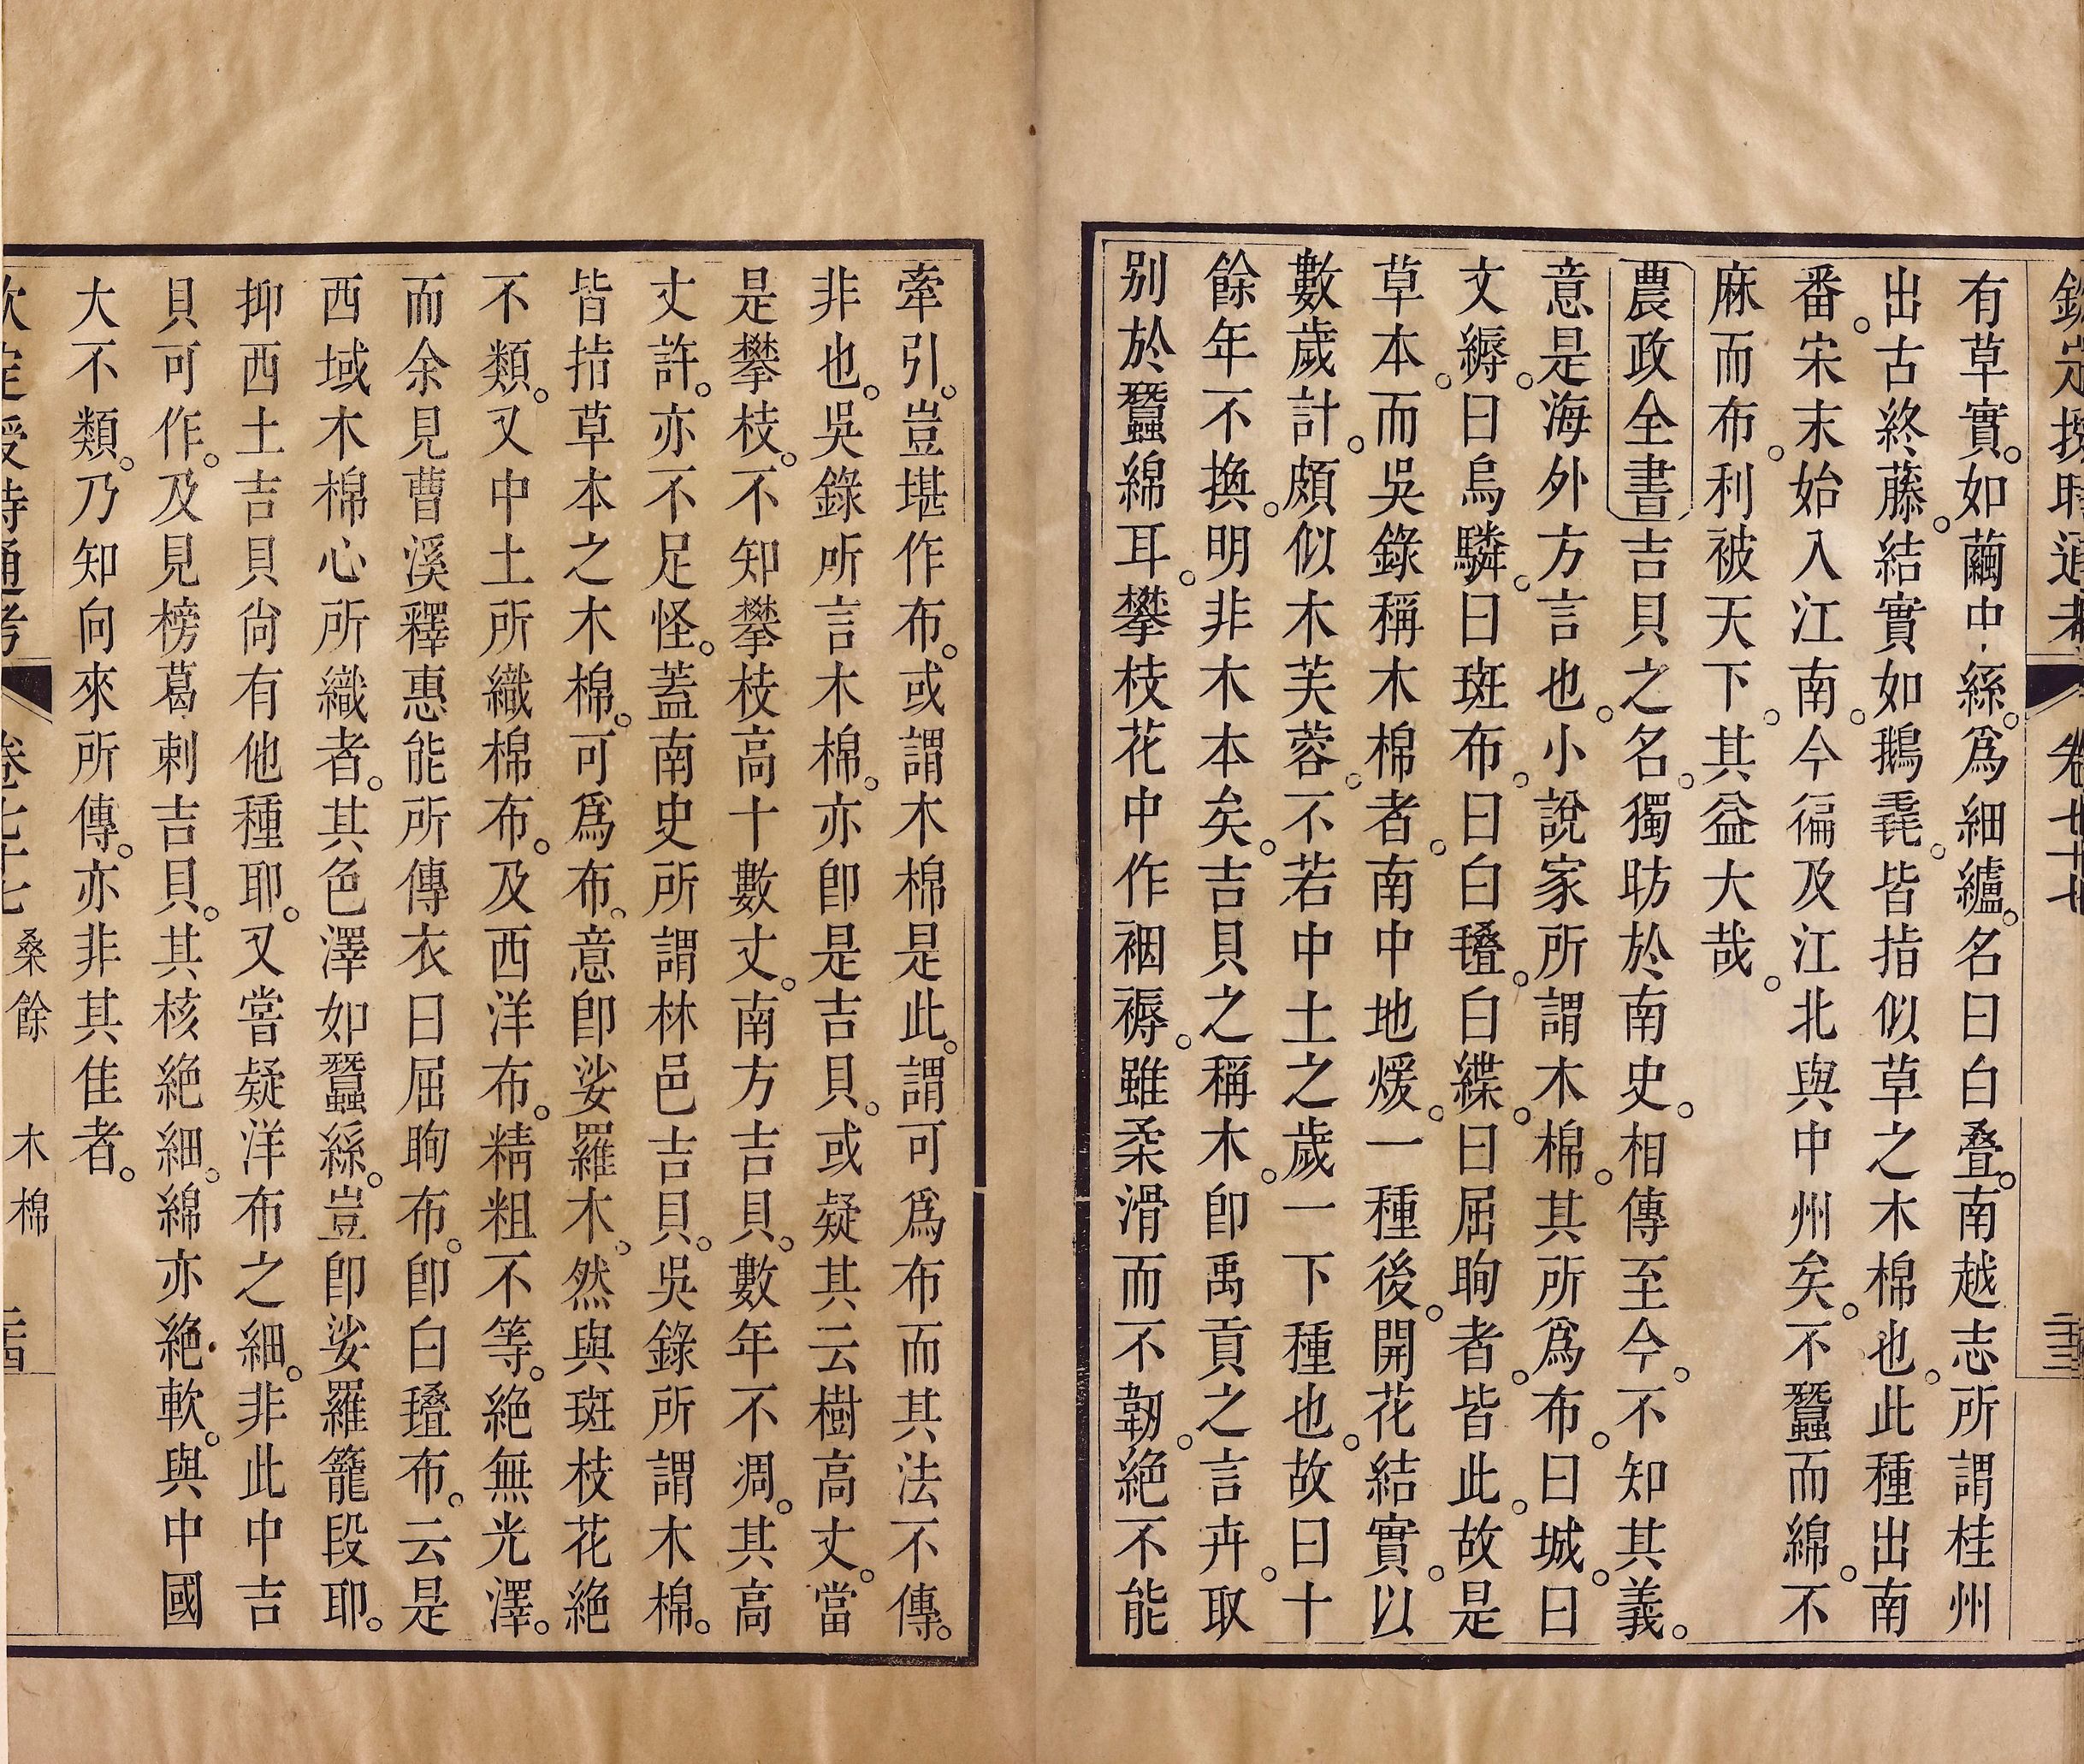 欽定授時通考 卷七十七 二十三
有草實。如繭中絲。爲細纑。名曰白疊。南越志所謂桂州
出古終藤。結實如鵝毳。皆指似草之木棉也。此種出南
番。宋末始入江南。今徧及江北與中州矣。不蠶而綿。不
麻而布。利被天下。其益大哉。
農政全書吉貝之名。獨昉於南史。相傳至今。不知其義。
意是海外方言也。小說家所謂木棉。其所爲布。曰城。曰
文縟。曰烏驎。曰斑布。曰白㲲。白緤。曰屈眴者。皆此。故是
草本。而吳錄稱木棉者。南中地煖。一種後。開花結實。以
數歲計。頗似木芙蓉。不若中土之歲一下種也。故曰十
餘年不換。明非木本矣。吉貝之稱木。卽禹貢之言卉。取
别於蠶綿耳。攀枝花中作裀褥。雖柔滑而不韌。絕不能
牽引。豈堪作布。或謂木棉是此。謂可爲布而其法不傳。
非也。吳錄所言木棉。亦卽是吉貝。或疑其云樹高丈。當
是攀枝。不知攀枝高十數丈。南方吉貝。數年不凋。其高
丈許。亦不足怪。蓋南史所謂林邑吉貝。吳錄所謂木棉。
皆指草本之木棉。可爲布。意卽娑羅木。然與斑枝花絕
不類。又中土所織棉布。及西洋布。精粗不等。絕無光澤。
而余見曹溪釋惠能所傳衣曰屈眴布。卽白㲲布。云是
西域木棉心所織者。其色澤如蠶絲。豈卽娑羅籠段耶。
抑西土吉貝尙有他種耶。又嘗疑洋布之細。非此中吉
貝可作。及見榜葛刺吉貝。其核絕細。綿亦絕軟。與中國
大不類。乃知向來所傳。亦非其佳者。
欽定授時通考 卷七十七 桑餘 木棉 二十四